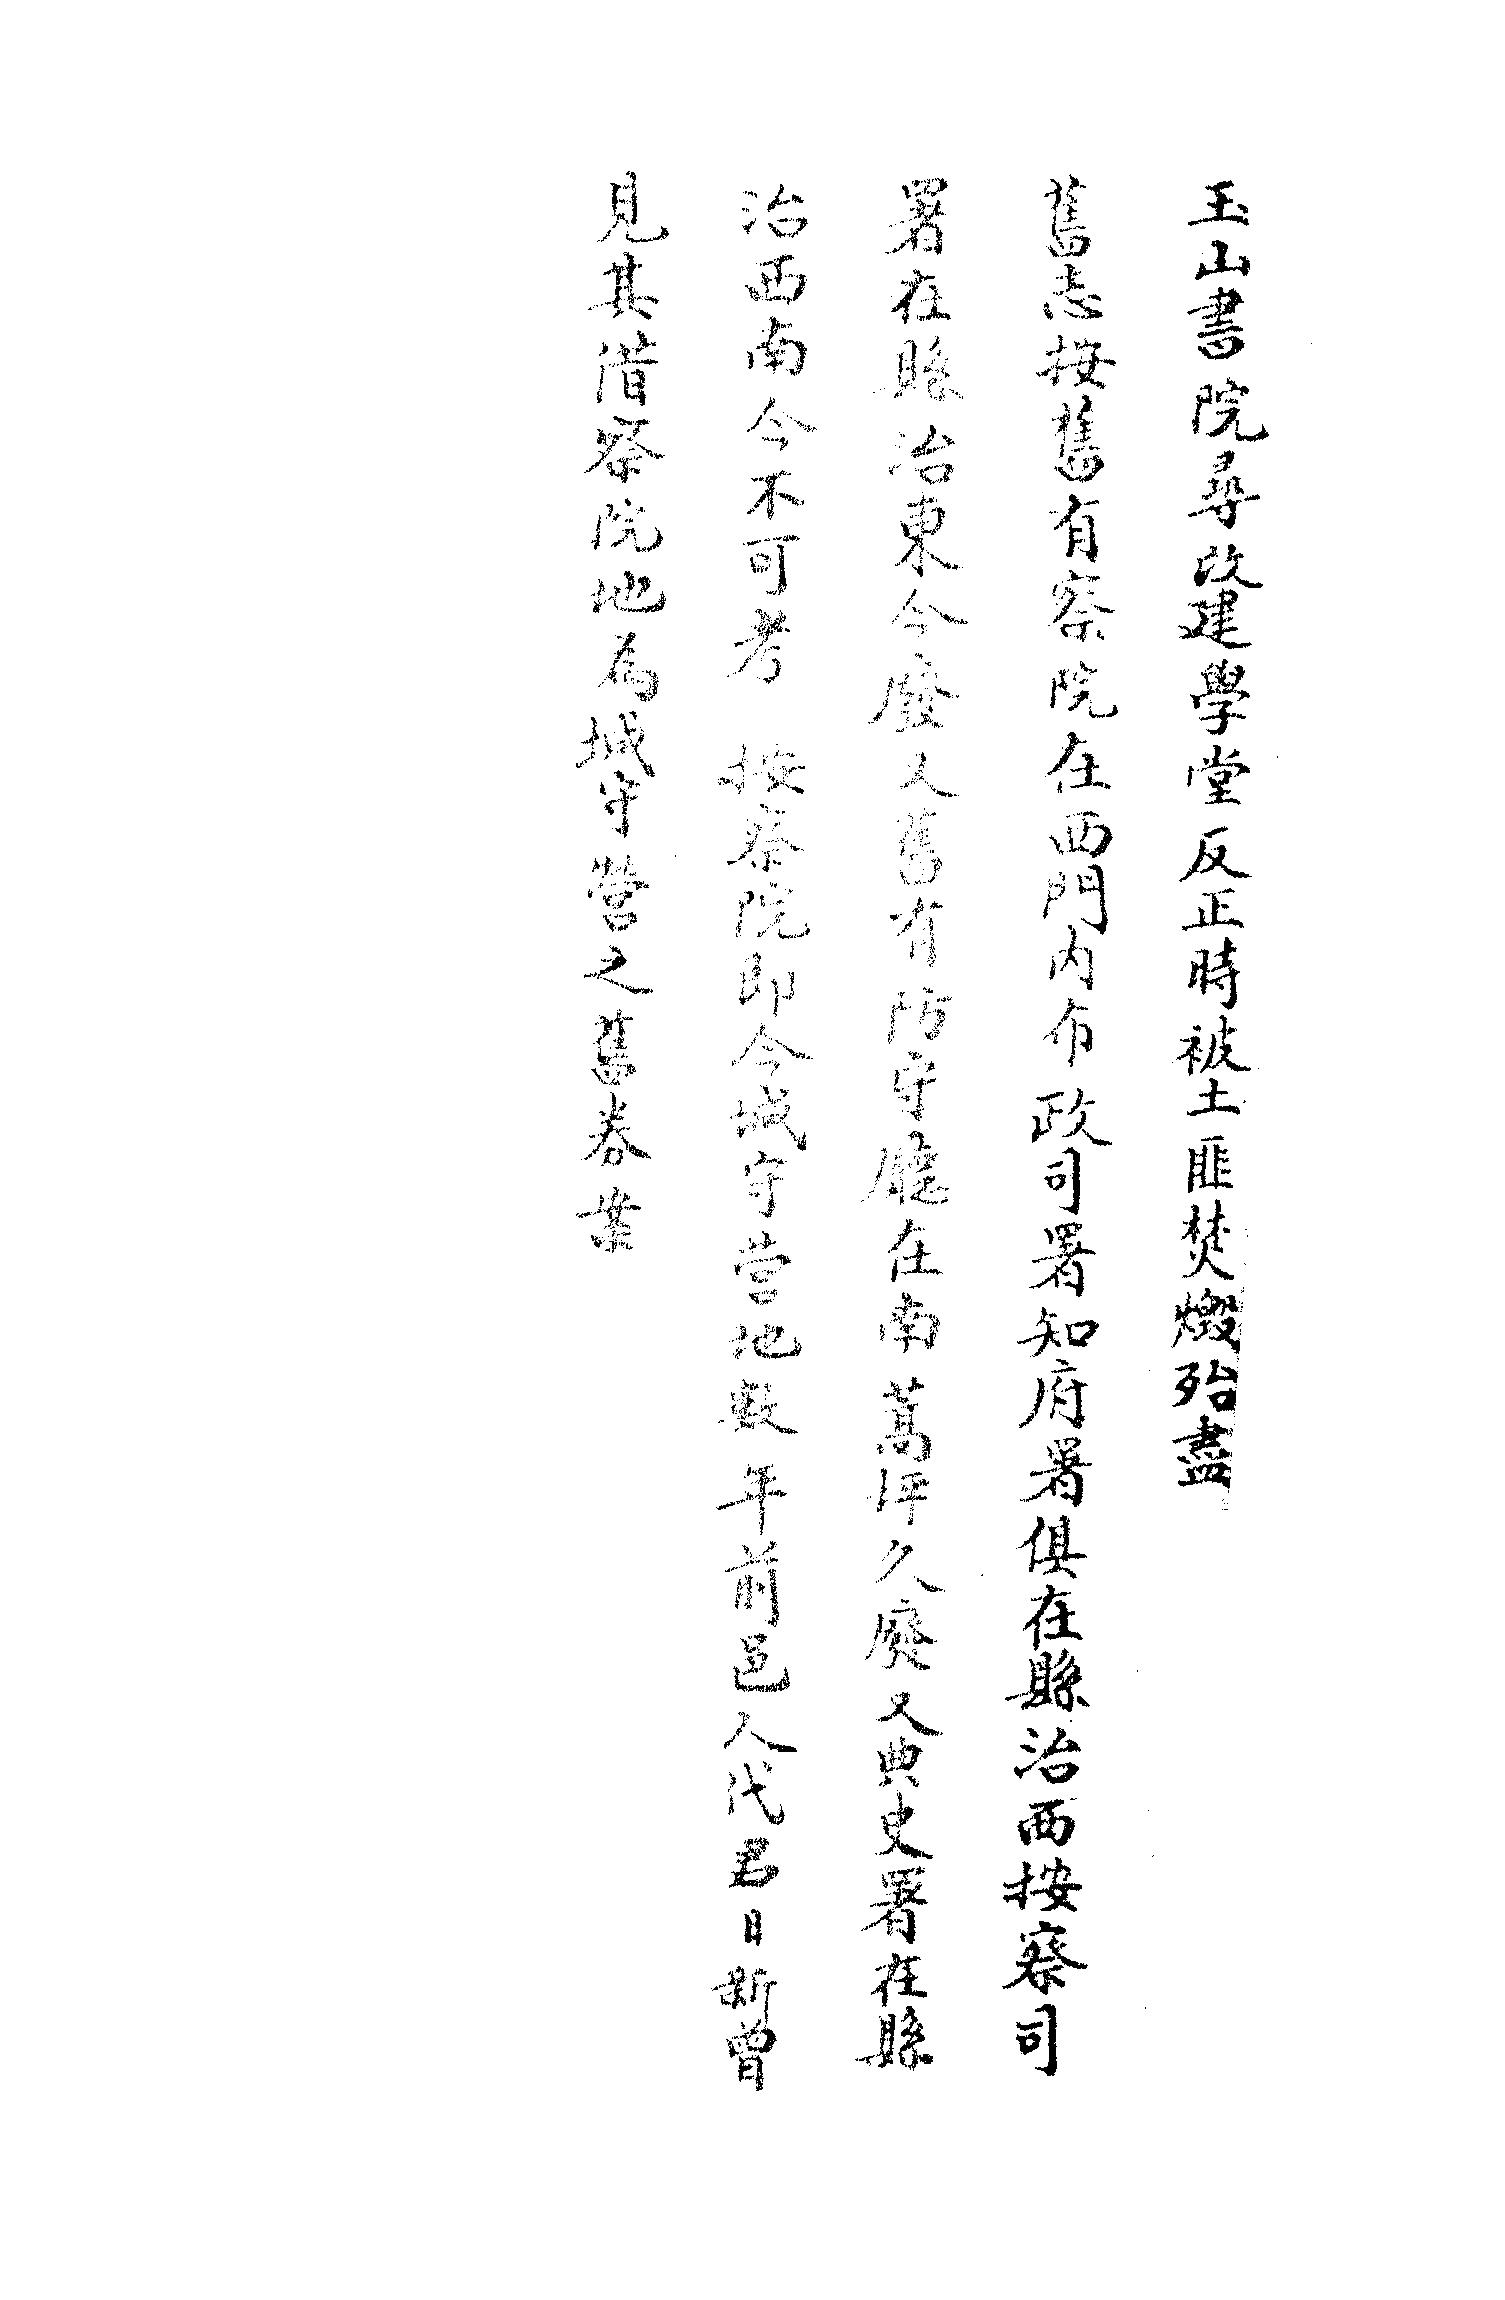 玉山書院尋改建學堂反正時被土匪焚燬殆盡
舊志按舊有察院在西門內布政司署知府署俱在縣治西按察司
署在縣治東今廢又舊有防守廳在南蒿坪久廢又典史署在縣
治西南今不可考　按察院即今城守營地數年前邑人代君日新曾
見其借察院地為城守營之舊卷葉